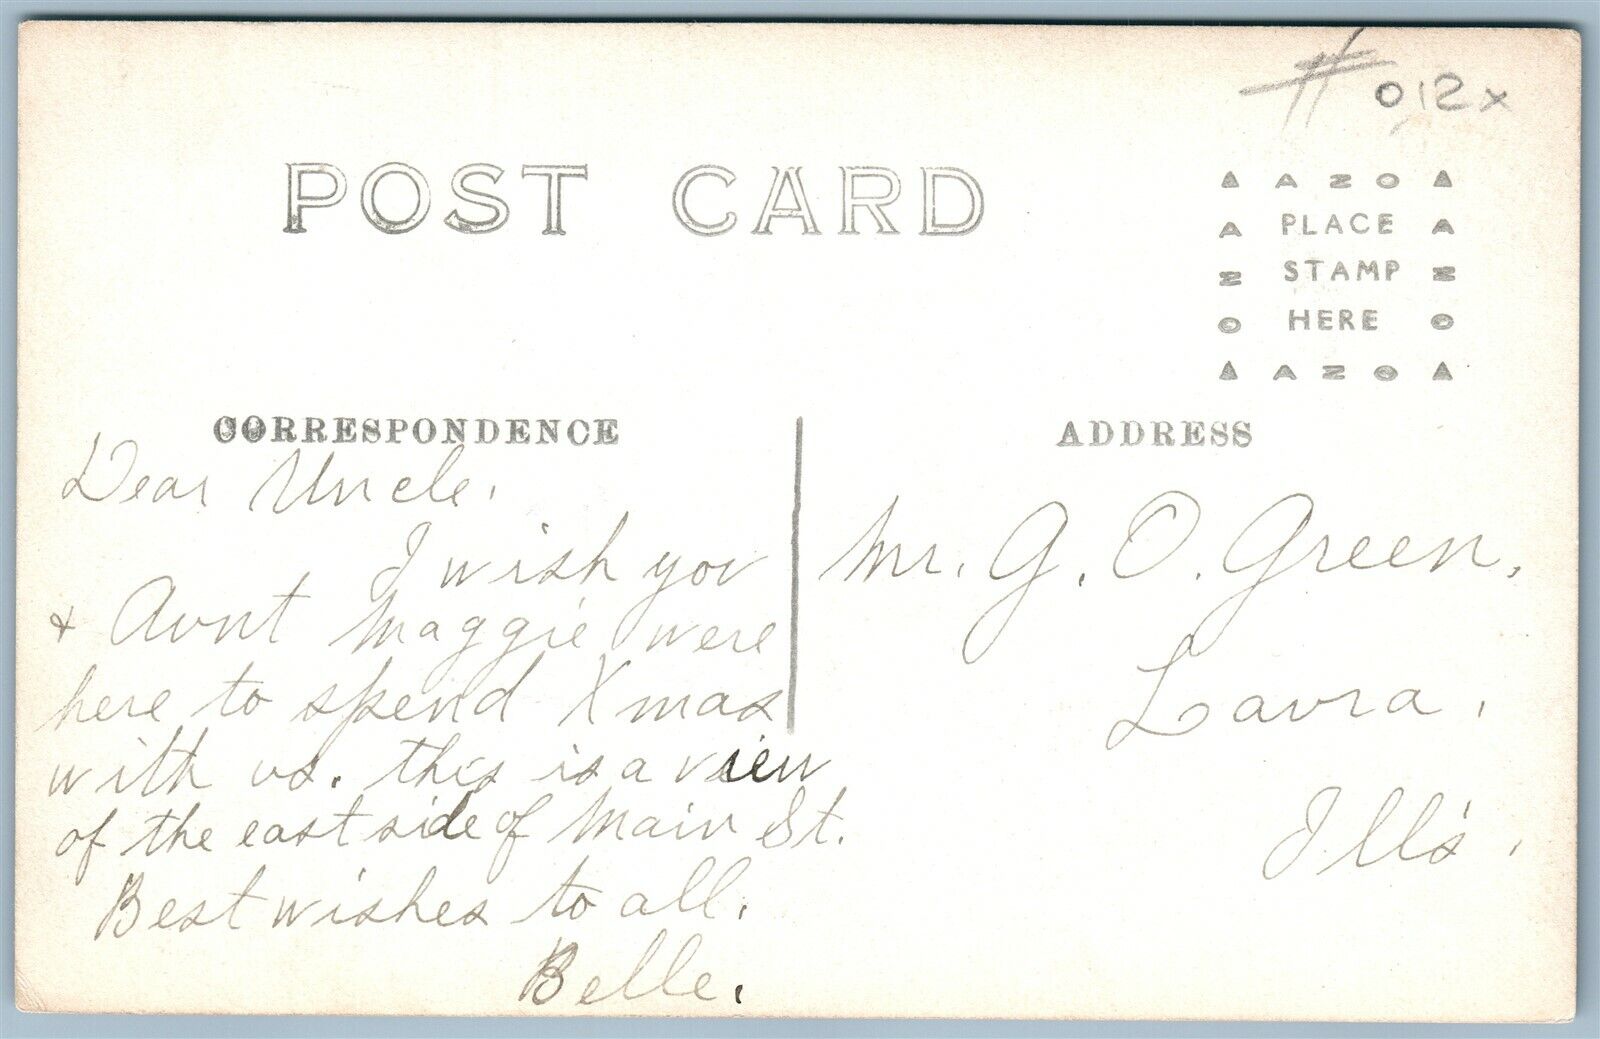 # 0,12x
POST CARD
▲ AZO ▲
A PLACE A
Z STAMP Z
O HERE O
▲ AZO ▲
CORRESPONDENCE
ADDRESS
Dear Uncle.
I wish you
& Aunt Maggie were
here to spend Xmas
with us. this is a view
of the east side of Main St.
Best wishes to all.
Belle.
Mr. G. O. Green,
Laura,
Ill's.